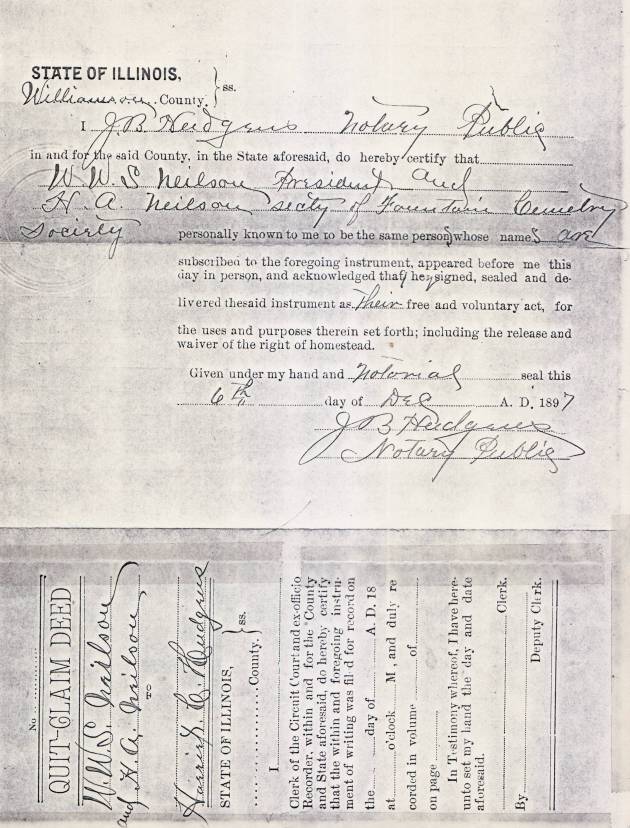 STATE OF ILLINOIS,
Williamson County. } ss.
I J. B. Hudgens Notary Public
in and for the said County, in the State aforesaid, do hereby certify that
W. W. S. Neilson President and
H. A. Neilson secty of Fountain Cemetry
Society personally known to me to be the same persons whose names are
subscribed to the foregoing instrument, appeared before me this
day in person, and acknowledged that they signed, sealed and de-
livered thesaid instrument as their free and voluntary act, for
the uses and purposes therein set forth; including the release and
waiver of the right of homestead.
Given under my hand and Notorial seal this
6th day of Dec A. D. 1897
J B Hudgens
Notary Public
No.
QUIT-CLAIM DEED
W. W. S. Neilson
and H. A. Neilson
TO
C. Hudgens
STATE OF ILLINOIS,
County. } ss.
I
Clerk of the Circuit Court and ex-officio
Recorder, within and for the County
and State aforesaid, do hereby certify
that the within and foregoing instru-
ment of writing was filed for record on
the day of A. D. 18
at o'clock M, and duly re
corded in volume of
on page
In Testimony whereof, I have here-
unto set my hand the day and date
aforesaid.
Clerk.
By Deputy Clerk.